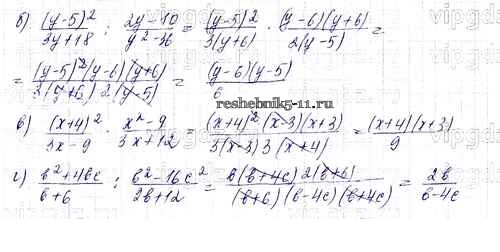 б) (y-5)²/3y+18 : 2y-10/y²-36 = (y-5)²/3(y+6) · (y-6)(y+6)/2(y-5) =
= (y-5)²(y-6)(y+6)/3(y+6)2(y-5) = (y-6)(y-5)/6
reshebnik5-11.ru
в) (x+4)²/3x-9 · x²-9/3x+12 = (x+4)²(x-3)(x+3)/3(x-3)3(x+4) = (x+4)(x+3)/9
г) b²+4bc/b+6 : b²-16c²/2b+12 = b(b+4c)2(b+6)/(b+6)(b-4c)(b+4c) = 2b/b-4c